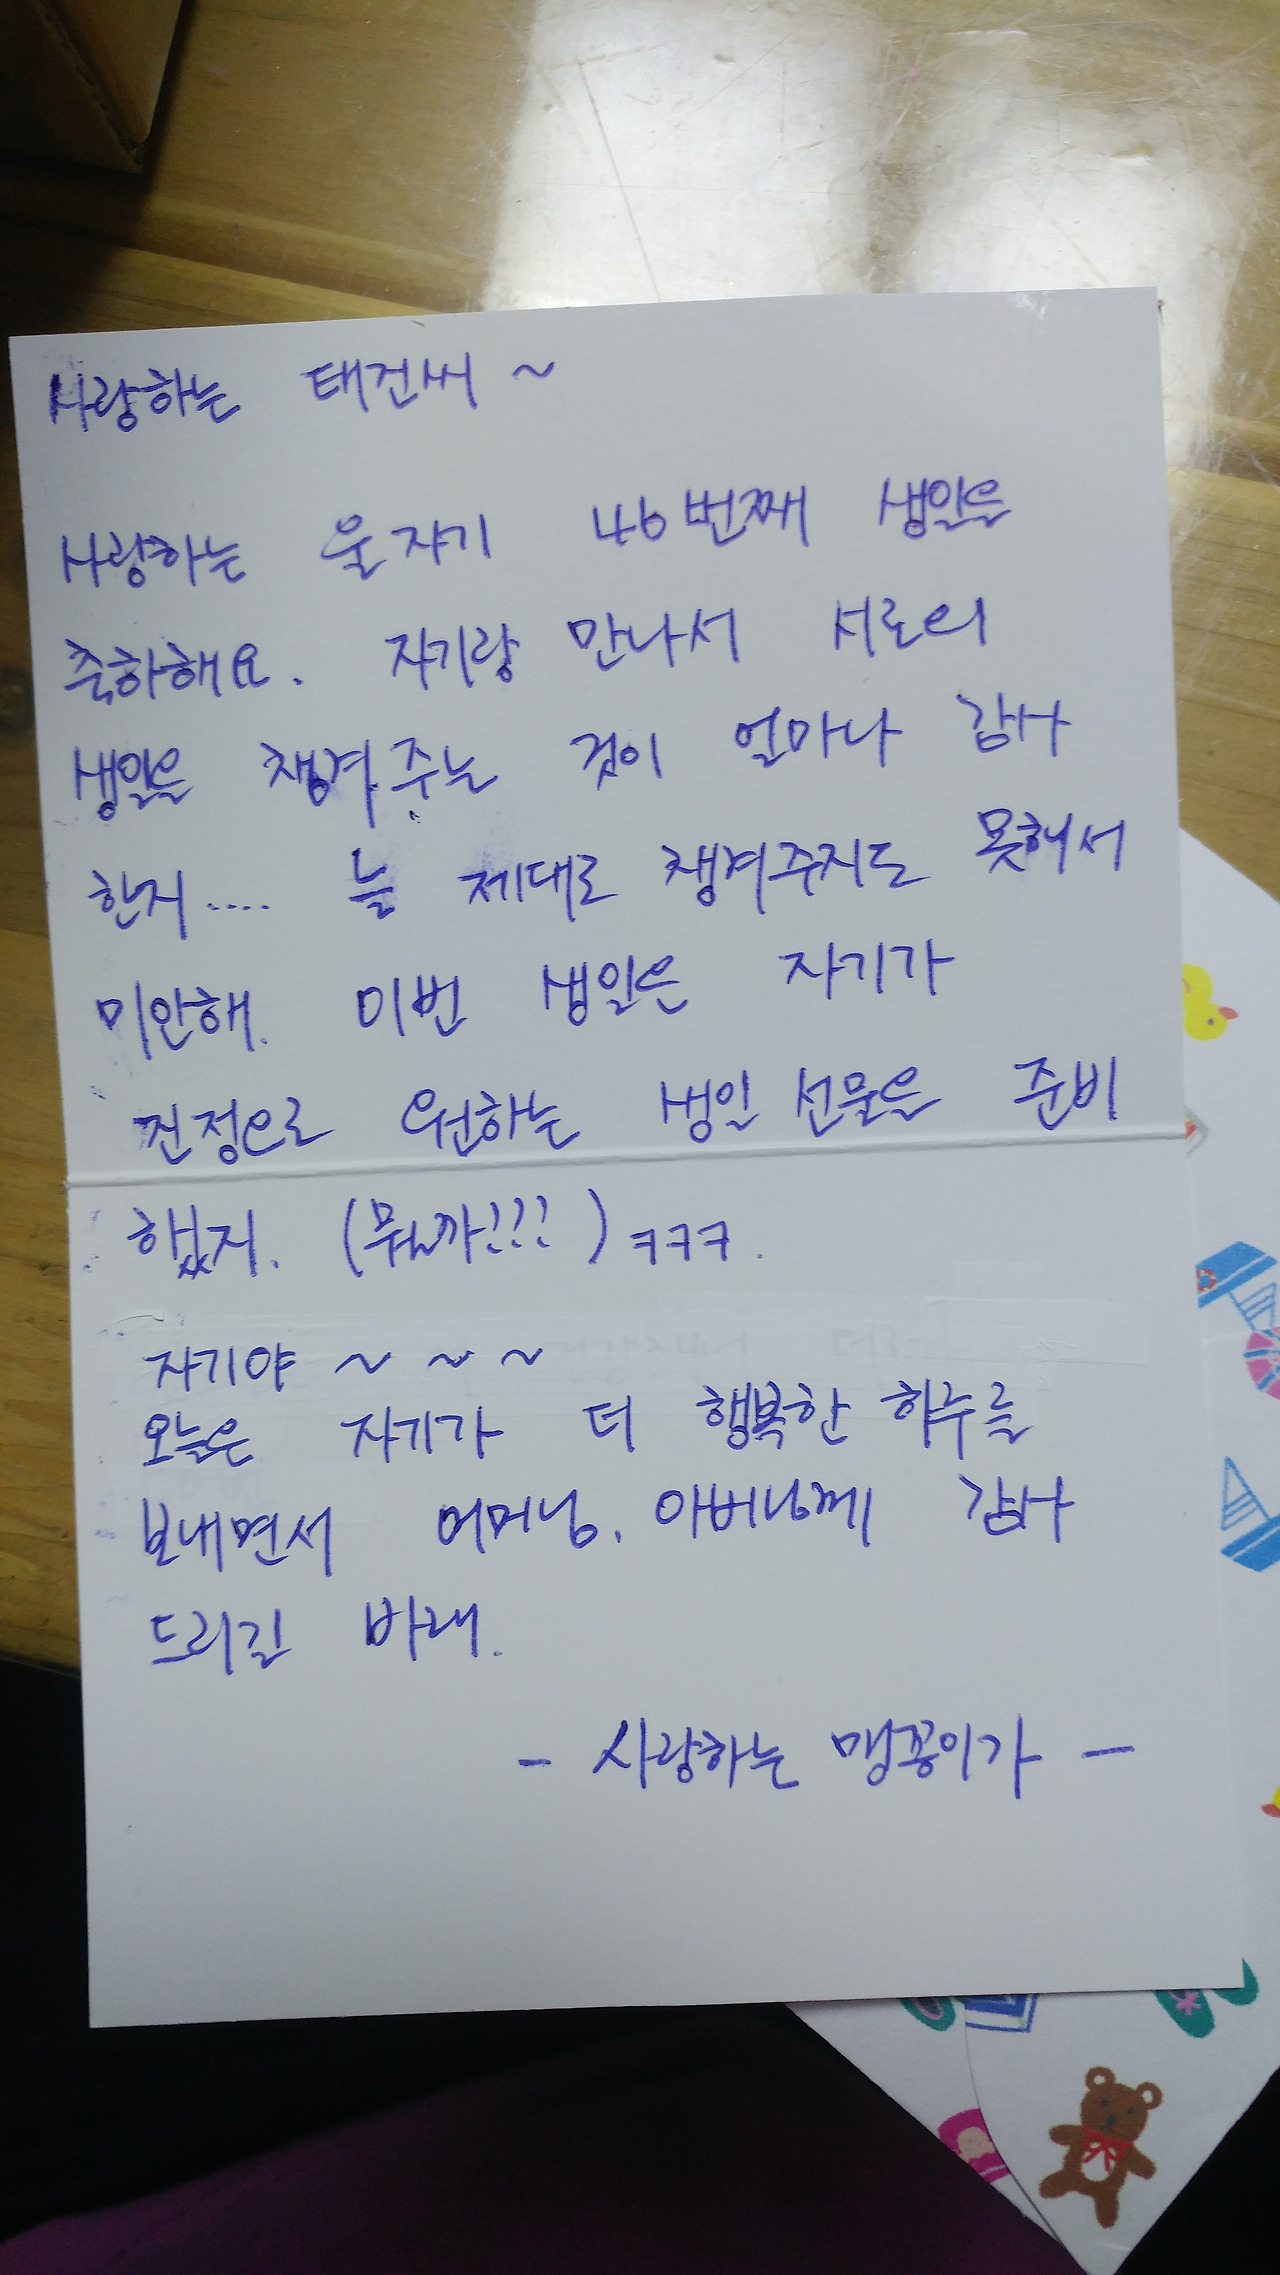 사랑하는 태건씨 ~
사랑하는 울자기 46번째 생일을
축하해요. 자기랑 만나서 서로의
생일을 챙겨주는 것이 얼마나 감사
한지.... 늘 제대로 챙겨주지도 못해서
미안해. 이번 생일은 자기가
진정으로 원하는 생일 선물을 준비
했지. (뭐는까!???) ㅋㅋㅋ.
자기야 ~ ~ ~
오늘은 자기가 더 행복한 하루를
보내면서 어머님, 아버님께 감사
드리길 바래.
- 사랑하는 맹꽁이가 -